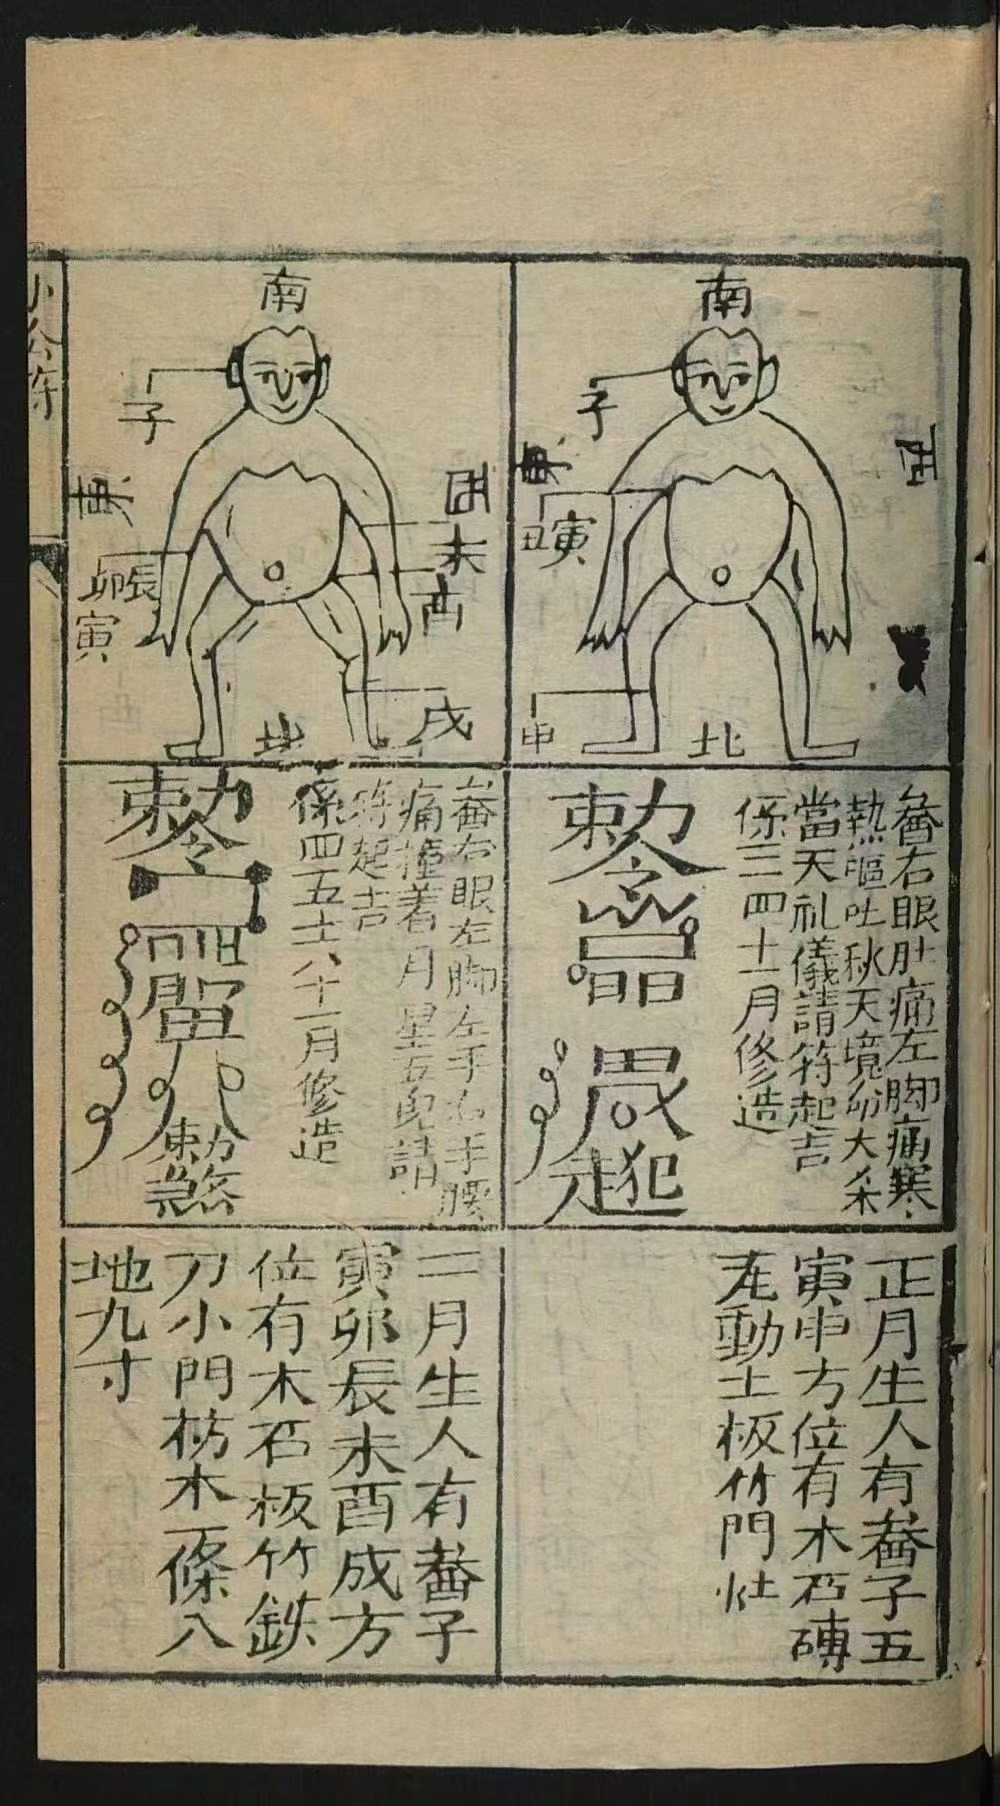 南
子
東
西
丑寅
申
北
𮔉右眼肚痛左脚痛寒
熱嘔吐秋天境內大杀
當天礼儀請符起吉
係三四十一月修造
勅令
晶
犯
正月生人有𮔉子五
寅申方位有木石磚
瓦動土板竹門灶
南
子
東
西
未
酉
卯辰
寅
戌
北
右眼左脚左手右手腰
痛撞着月星五鬼請
符起吉
係四五六八十一月修造
勅令
勅
煞
二月生人有𮔉子
寅卯辰未酉戌方
位有木石板竹鉄
刀小門枋木一條八
地九寸